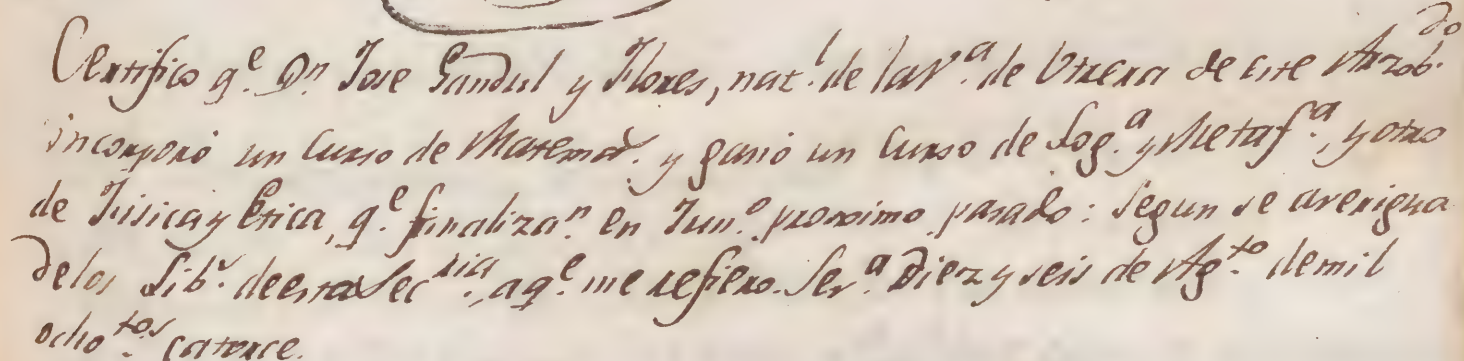 Certifico q.e D.n Jose Gandul y Flores, nat.l de la V.a de Utrera de este Arzob.do
incorporó un Curso de Matemat.s y ganó un Curso de Log.a y Metaf.a, y otro
de Fisica y Etica, q.e finalizan.n en Jun.o proximo pasado: Segun se averigua
de los Lib.s de esta Sec.ria, a q.e me refiero. Sev.a Diez y seis de Ag.to de mil
ocho.tos catorce.